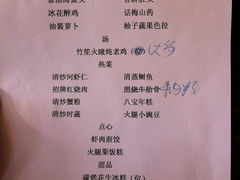 冰花醉鸡 话梅山药
油酱萝卜 柚子蔬果色拉
汤
竹笙火瞳炖老鸡
热菜
清炒河虾仁 清蒸鲥鱼
招牌红烧肉 照烧牛肋骨
清炒蟹粉 八宝年糕
清炒时蔬 火腿小豌豆
点心
虾肉煎饺
火腿菜饭糕
甜品